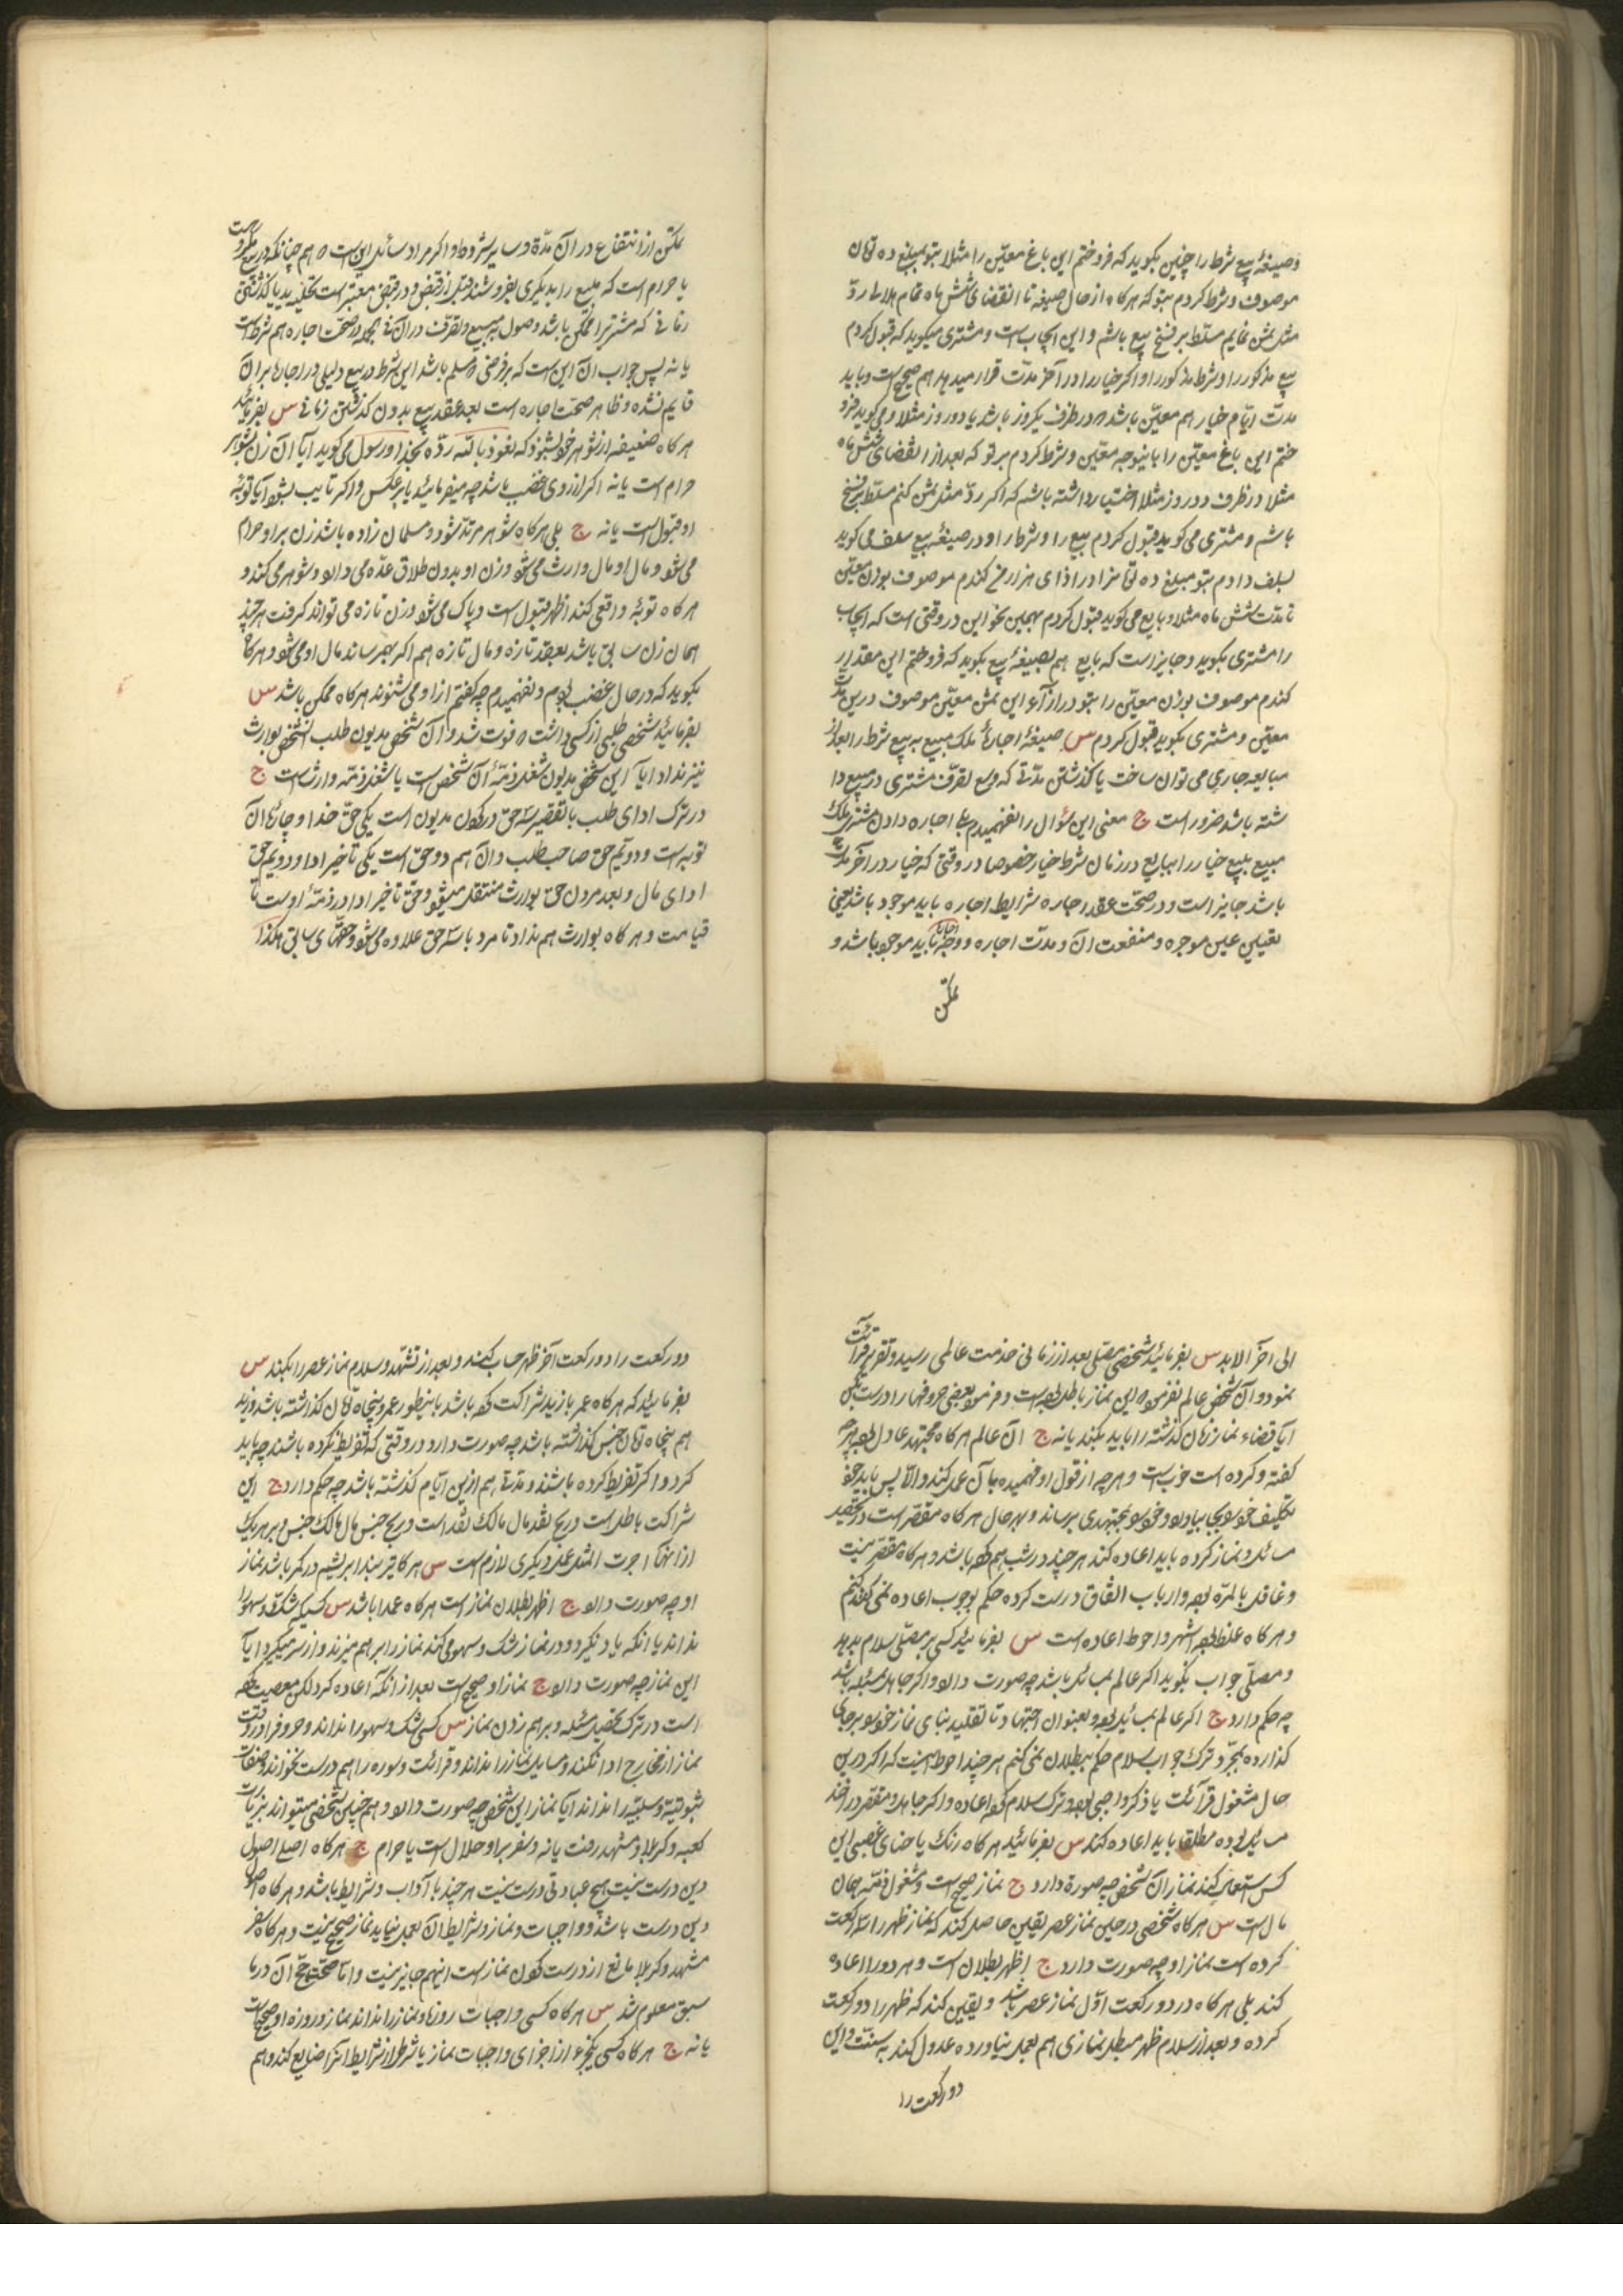 وصیغهٔ بیع شرط را چنین بگوید که فروختم این باغ معیّن را مثلا بتو بمبلغ ده تومان
موصوف و شرط کردم بتو که هرگاه از حال صیغه تا انقضای شش ماه تمام هلالی ردّ
مثل ثمن نمایم مسلّط بر فسخ بیع باشم و این ایجاب است و مشتری میگوید که قبول کردم
بیع مذکور را و شرط مذکور را و اکر خیار را در آخر مدّت قرار میدهد هم صحیح است و باید
مدت ایّام خیار هم معیّن باشد در ظرف یکروز باشد یا دو روز مثلا و می گوید فرو
ختم این باغ معیّن را باین وجه معیّن و شرط کردم بر تو که بعد از انقضای شش ماه
مثلا در ظرف دو روز مثلا اختیار داشته باشم که اکر ردّ مثل ثمن کنم مسلّط بر فسخ
باشم و مشتری می کوید قبول کردم بیع را و شرط را و در صیغهٔ بیع سلف می کوید
بسلف دادم بتو مبلغ ده تومانرا در ازای هزار من کندم موصوف بوزن معیّن
تا مدّت شش ماه مثلا و بایع می کوید قبول کردم بهمین نحو این در وقتی است که ایجاب
را مشتری بکوید و جایز است که بایع هم بصیغهٔ بیع بکوید که فروختم این مقدار
کندم موصوف بوزن معیّن را بتو در ازاء این ثمن معیّن موصوف در این مدّت
معیّن و مشتری بکوید قبول کردم س صیغهٔ اجارهٔ ملک مبیع به بیع شرط را بعد از
مبایعه جاری می توان ساخت یا کذشتن مدّتی که وسع تصرّف مشتری در مبیع دا
شته باشد ضرور است ج معنی این سؤال را نفهمیدم بلی اجاره دادن مشتری ملک
مبیع ببیع خیار را ببایع در زمان شرط خیار خصوصا در وقتی که خیار در آخر مدّت
باشد جایز است و در صحّت عقد اجاره شرایط اجاره باید موجود باشد یعنی
تعیین عین موجره و منفعت آن و مدّت اجاره و وجه اجاره باید موجود باشد و
تمکّن
تمکّن از انتفاع در آن مدّة و سایر شروط و اکر مراد سائل این است که هم چنانکه در بیع مکروه است
یا حرام است که مبیع را بدیکری بفروشند قبل از قبض و در قبض معتبر است تخلیه ید یا کذشتن
زمانی که مشتریرا ممکن باشد وصول به مبیع و تصرّف در آن فی الجمله در صحّت اجاره هم شرط است
یا نه پس جواب آن این است که بر فرضی که مسلّم باشد این شرط در بیع دلیلی در اجاره بر آن
قایم نشده و ظاهر صحّت اجاره است بعد عقد بیع بدون کذشتن زمانی س بفرمائید
هرکاه ضعیفه از شوهر خود بشنود که نعوذ بالله ردّه بخدا و رسول می کوید آیا آن زن بشوهر
حرام است یا نه اکر از روی غضب باشد چه میفرمائید یا بر عکس و اکر تایب بشود آیا توبهٔ
او قبول است یا نه ج بلی هرکاه شوهر مرتدّ شود و مسلمان زاده باشد زن بر او حرام
می شود و مال او مال وارث می شود و زن او بدون طلاق عدّه می دارد و شوهر می کند و
هرکاه توبهٔ واقعی کند اظهر قبول است و پاک می شود و زن تازه می تواند کرفت هر چند
همان زن سابق باشد بعقد تازه و مال تازه هم اکر بهم رساند مال او می شود و هرکاه
بکوید که در حال غضب بودم و نفهمیدم چه کفتم از او می شنوند هرکاه ممکن باشد س
بفرمائید شخصی طلبی از کسی داشت و فوت شد و آن شخص مدیون طلب آنشخص بوارث
نیز نداد آیا این شخص مدیون شغل ذمّهٔ آن شخص است یا شغل ذمّهٔ وارث است ج
در ترک ادای طلب با تقصیر سه حق در کردن مدیون است یکی حقّ خدا و چارهٔ آن
توبه است و دویّم حق صاحب طلب و آن هم دو حق است یکی تأخیر ادا و دویّم حق
ادای مال و بعد مردن حق بوارث منتقل میشود و حق تأخیر ادا در ذمّهٔ اوست تا
قیامت و هرکاه بوارث هم نداد تا مرد باز سه حق علاوه می شود و حقهای سابق هکذا
الی آخر الابد س بفرمائید شخصی مصلّی بعد از زمانی خدمت عالمی رسید و تقریر قرائت
نمود و آن شخص عالم بفرمود که این نماز باطل بوده است و فرمود بعضی حروفها را درست بکن
آیا قضاء نماز زمان کذشته را باید بکند یا نه ج آن عالم هرکاه مجتهد عادل بوده هرچه
کفته و کرده است خوب است و هر چه از قول او فهمیده بآن عمل کند و الّا پس باید خود
تکلیف خود را بجا بیاورد و خود را بمجتهدی برساند و بهر حال هرکاه مقصّر است در تحصیل
مسائل و نماز کرده باید اعاده کند هر چند در شب هم کرده باشد و هرکاه مقصّر نیست
و غافل بالمرّه بوده و از باب اتّفاق درست کرده حکم بوجوب اعاده نمی کنم
و هرکاه غلط بوده اشهر و احوط اعاده است س بفرمائید کسی بر مصلّی سلام بدهد
و مصلّی جواب نکوید اکر عالم بمسائل باشد چه صورت دارد و اکر جاهل بمسئله باشد
چه حکم دارد ج اکر عالم بمسائل بوده و بعنوان اجتهاد و تا تقلید بنای نماز خود بر جای
کذارده بمجرّد ترک جواب سلام حکم ببطلان نمی کنم هر چند احوط اینست که اکر در این
حال مشغول قرائت یا ذکر واجبی بوده و ترک سلام کرده اعاده و اکر جاهل و مقصّر در اخذ
مسائل بوده مطلقا باید اعاده کند س بفرمائید هرکاه رنک یا حنای غصبی این
کس استعمال کند نماز آن شخص چه صورة دارد ج نماز صحیح است و مشغول ذمّه همان
مال است س هرکاه شخصی در حین نماز عصر یقین حاصل کند که نماز ظهر را سه رکعت
کرده است نماز او چه صورت دارد ج اظهر بطلان است و هر دو را اعاده
کند بلی هرکاه در دو رکعت اوّل نماز عصر باشد و یقین کند که ظهر را دو رکعت
کرده و بعد از سلام ظهر مبطل نمازی هم بعمل نیاورده عدول کند به سنّت و این
دو رکعت را
دو رکعت را دو رکعت آخر ظهر حساب کند و بعد از تشهّد و سلام نماز عصر را بکند س
بفرمائید که هرکاه عمر با زید شراکت کرده باشد باینطور عمرو پنجاه تومان کذاشته باشد و زید
هم پنجاه تومان جنس کذاشته باشد چه صورت دارد در وقتی که تفریط نکرده باشند چه باید
کرد و اکر تفریط کرده باشند و مدّتی هم از این ایّام کذشته باشد چه حکم دارد ج این
شراکت باطل است و ربح نقد مال مالک نقد است و ربح جنس مال مالک جنس و بر هر یک
از آنها اجرت المثل عمل دیکری لازم است س هرکاه زیر بند ابریشم در کمر باشد نماز
او چه صورت دارد ج اظهر بطلان نماز است هرکاه عمدا باشد س کسیکه شک و سهو را
نداند یا آنکه یاد نکیرد و در نماز شک و سهو می کند نماز را بر هم میزند و از سر میکیرد آیا
این نماز چه صورت دارد ج نماز او صحیح است بعد از آنکه اعاده کرد لکن معصیت کرده
است در ترک تحصیل مسئله و برهم زدن نماز س کسی شک و سهو را نداند و حروف را در وقت
نماز از مخارج ادا نکند و مسایل نماز را نداند و قرائت و سوره را هم درست نخواند و صفات
ثبوتیّه و سلبیّه را نداند آیا نماز این شخص چه صورت دارد و هم چنین شخصی میتواند بزیارت
کعبه و کربلا و مشهد رفت یا نه و سفر بر او حلال است یا حرام ج هرکاه اصل اصول
دین درست نیست هیچ عبادتی درست نیست هر چند با آداب و شرایط باشد و هرکاه اصول
دین درست باشد و واجبات و نماز و شرایط آن بعمل نیاید نماز صحیح نیست و هرکاه سفر
مشهد و کربلا مانع از درست کردن نماز است اینهم جایز نیست و امّا صحّت حجّ آن در ما
سبق معلوم شد س هرکاه کسی واجبات روزه و نماز را نداند نماز و روزه او صحیح است
یا نه ج هرکاه کسی یکجزء از اجزای واجبات نماز یا شرطی از شرایط آنرا ضایع کند و هم